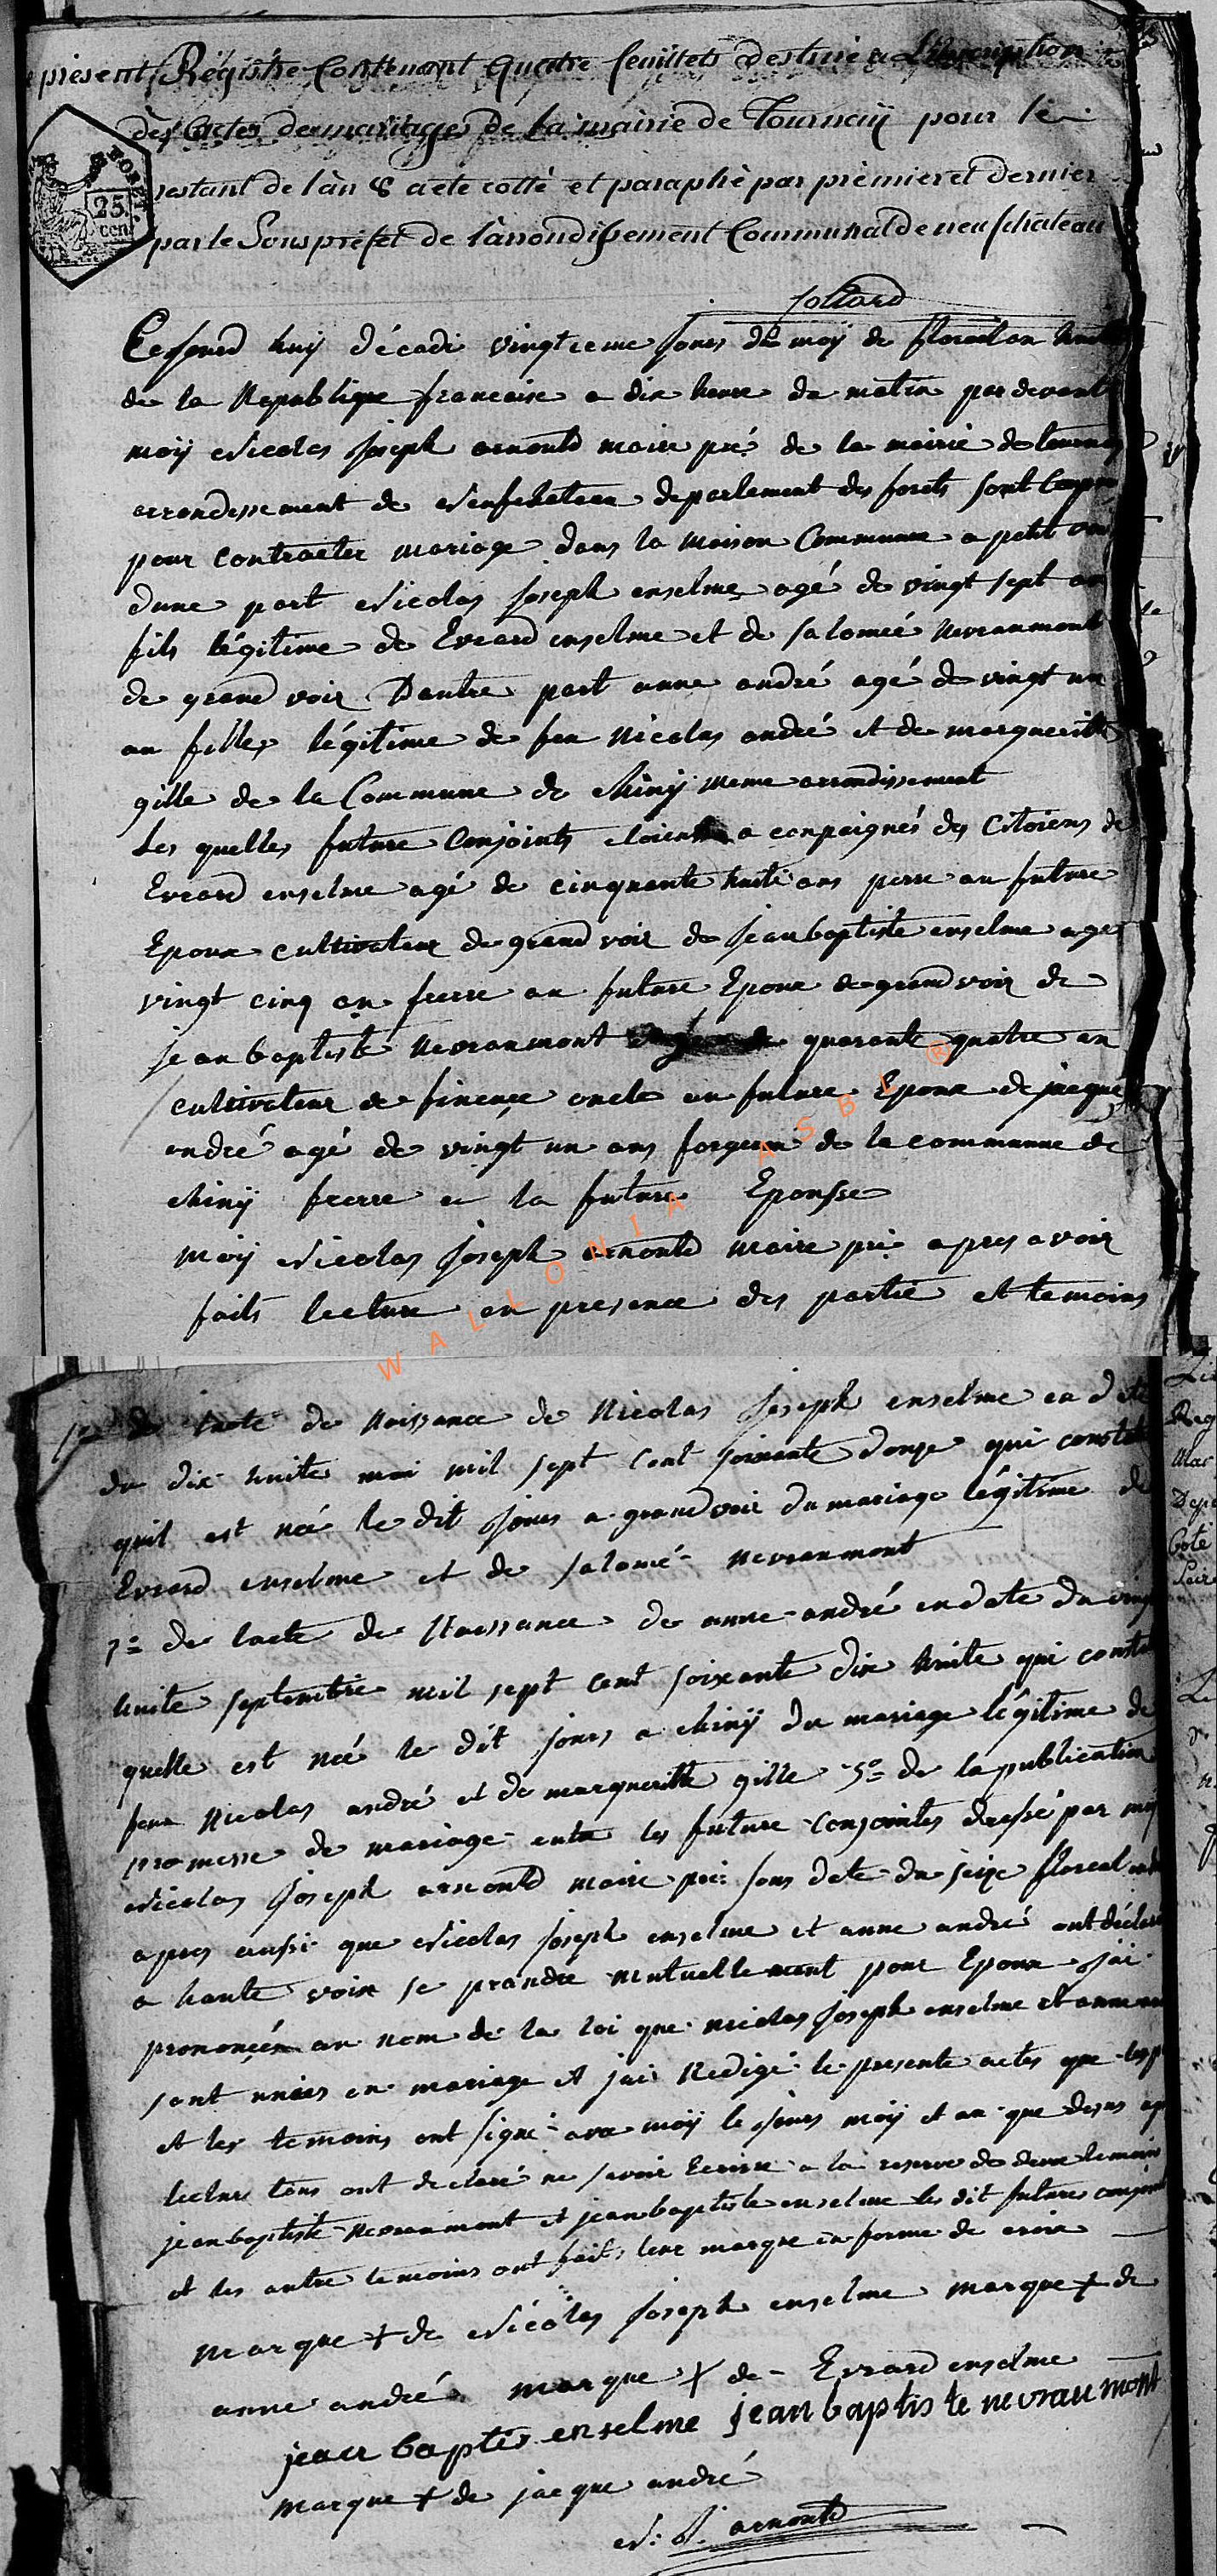 présent Régistre Contenant Quatre feuillets destiné a L'inscription
des Actes de mariages de la mairie de Tournay pour le
restant de l'an 8 a été cotté et paraphé par prèmier et dernier
par le Sous préfet de l'arrondissement Communal de neufchateau
FORETS
25
cent
Collard
Cejourd huy décadi vingtieme jours du moy de floréal an huit
de la Republique francaise a dix heure du matin par devant
moÿ Nicolas joseph arnould maire pré de la mairie de tournay
arrondissement de Neufchateau departement des forets sont Comparu
pour contracter mariage dans la maison Commune a petit voir
dune part Nicolas joseph enselme agé de vingt sept an
fils légitime de Evrard enselme et de salomeé Nevraumont
de grand voir Dautre part anne andré agé de vingt un
an filles légitime de feu Nicolas andré et de marguerite
gille de la Commune de chinÿ meme arrondissement
Les quelles future Conjoints etoient a conpaignés des Citoiens de
Evrard enselme agé de cinquante huite ans perre au future
Epoux cultivateur de grand voir de jean baptiste enselme age
vingt cinq an frerre au future Epoux de grand voir de
jean baptiste Nevraumont quarante quatre an
cultivateur de fineuce oncle au future Epoux de jacque
andré agé de vingt un ans forgeur de la commune de
chinÿ frerre a la future Epousse
moÿ Nicolas joseph arnould maire pré apres avoir
faits lecture en presence des partie et temoins
1° de lacte de Naissance de Nicolas joseph enselme en date
du dix huite mai mil sept Cent soixante douze qui constate
quil est née le dit jours a grand voir du mariage légitime de
Evrard enselme et de salomé Nevraumont
2° de lacte de Naissance de anne andré en date du vingt
huite septembre mil sept cent soixante dix huite qui constate
quelle est née le dit jours a chinÿ du mariage légitime de
feux Nicolas andré et de marguerite gille 3° de la publication
promesse de mariage entre les future conjointes dressé par moÿ
Nicolas joseph arnould maire pré sous date du seize floreal
apres aussi que Nicolas joseph enselme et anne andré ont déclaré
a haute voix se prandre mutuellement pour Epoux jai
prononcée au nom de la loi que nicolas joseph enselme et anne
sont unies en mariage et jai Redigé le presente actes que les
et les temoins ont signé avec moÿ le jours moÿ et an que desus
lecture tous ont declaré ne savoir Ecrire a la reserve de deux temoins
jean baptiste Nevraumont et jean baptiste enselme les dit future conjoints
et les autre temoins ont faits leur marque en forme de croix
marque + de Nicolas joseph enselme marque + de
anne andré marque + de Evrard enselme
jean baptis enselme jean baptis te nevraumont
marque + de jacque andré
N: J. arnould
WALLONIA ASBL ®